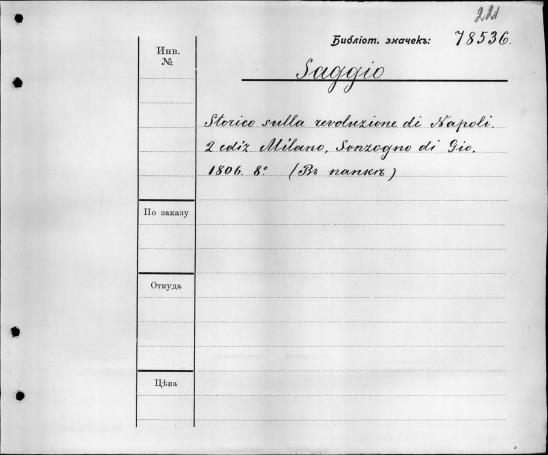 221
Библіот. значекъ: 78536.
Инв.
№
Saggio
Storico sulla revoluzione di Napoli.
2 ediz Milano, Sonzogno di Gio.
1806. 8° (Въ папкѣ)
По заказу
Откуда
Цѣна